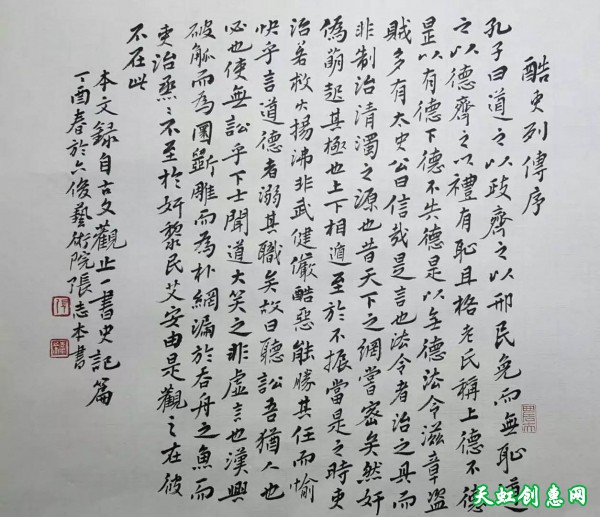 酷吏列傳序
孔子曰道之以政齊之以刑民免而無恥道
之以德齊之以禮有恥且格老氏稱上德不德
是以有德下德不失德是以無德法令滋章盜
賊多有太史公曰信哉是言也法令者治之具而
非制治清濁之源也昔天下之網嘗密矣然奸
偽萌起其極也上下相遁至於不振當是之時吏
治若救火揚沸非武健嚴酷惡能勝其任而愉
快乎言道德者溺其職矣故曰聽訟吾猶人也
必也使無訟乎下士聞道大笑之非虛言也漢興
破觚而為圜斲雕而為朴網漏於吞舟之魚而
吏治烝〻不至於奸黎民艾安由是觀之在彼
不在此
本文錄自古文觀止一書史記篇
丁酉春於六俊藝術院張志本書
天虹创惠网